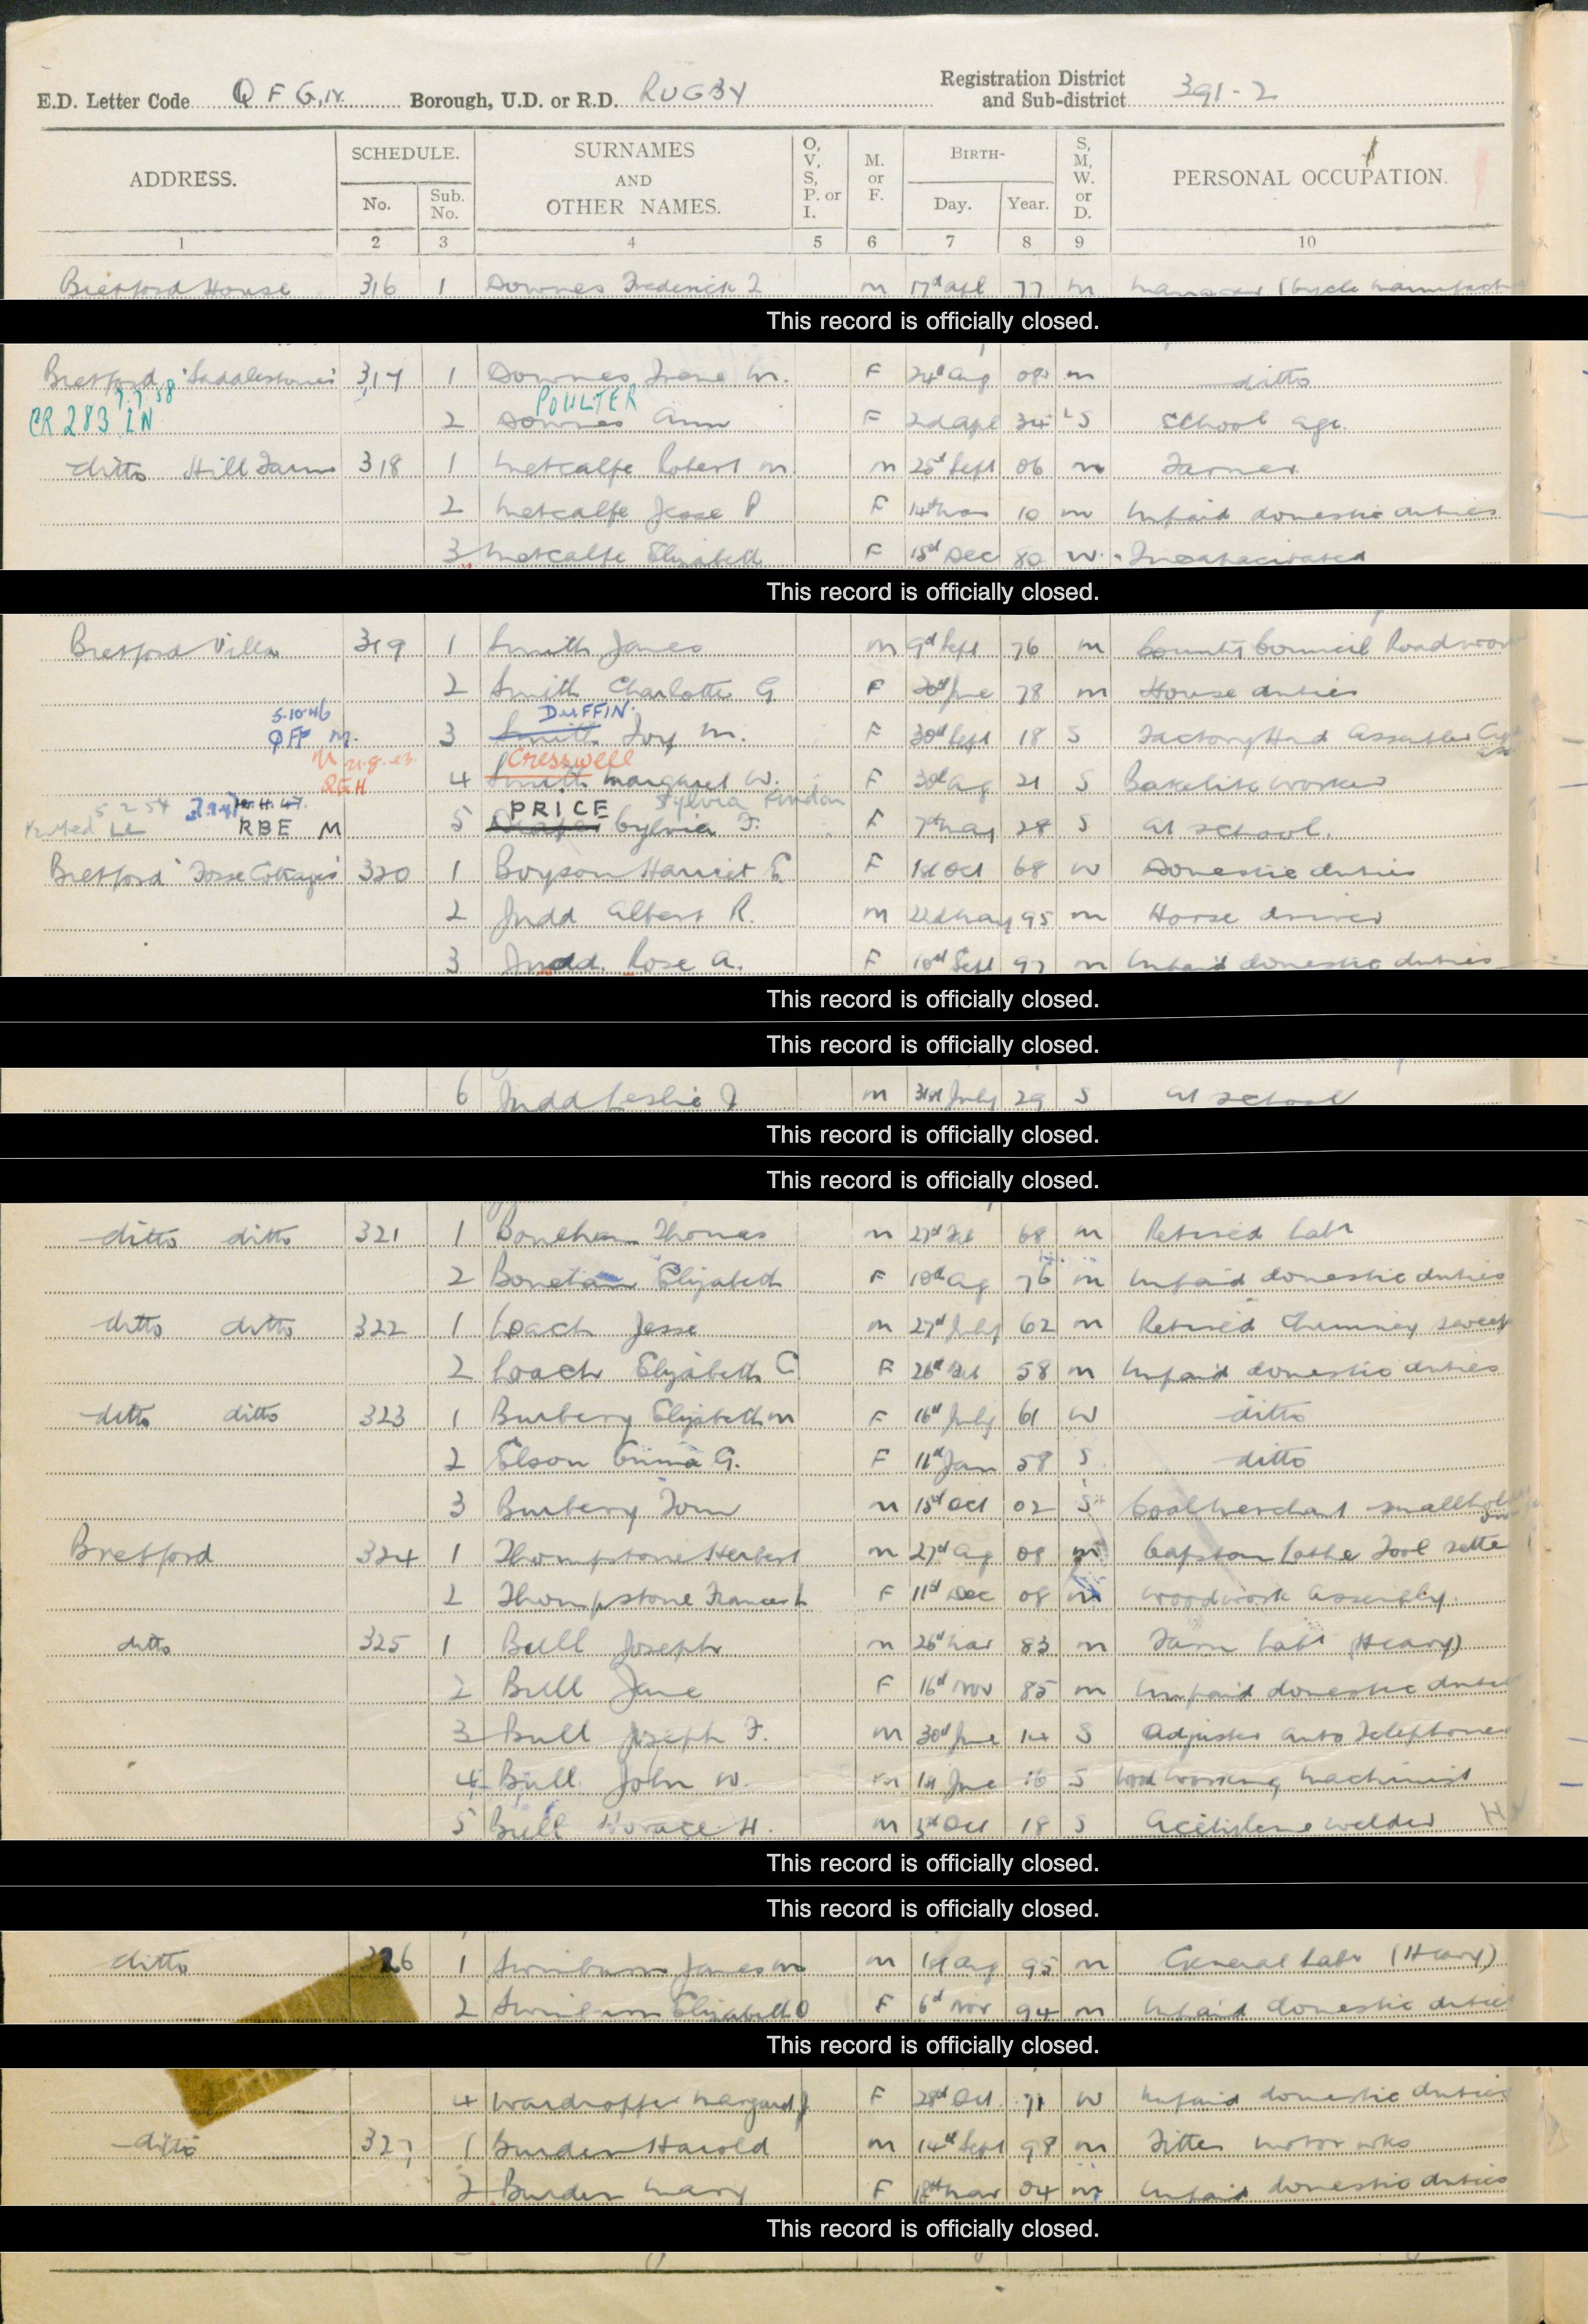 E.D. Letter Code Q F G.IV. Borough, U.D. or R.D. RUGBY Registration District and Sub-district 391-2
ADDRESS. SCHEDULE. No. Sub. No. SURNAMES AND OTHER NAMES. O, V, S, P. or I. M. or F. BIRTH- Day. Year. S, M, W. or D. PERSONAL OCCUPATION.
1 2 3 4 5 6 7 8 9 10
Bretford House 316 1 Downes Frederick J M 17th Apl 77 M Manager (Cycle
This record is officially closed.
Bretford 'Saddlestones' 317 1 Downes Irene M. F 24th Aug 08 M ditto
7.7.58 POULTER
CR 283 LN 2 Downes Ann F 2d Apl 34 S School age.
ditto Hill Farm 318 1 Metcalfe Robert M. M 25th Sept 06 M Farmer
2 Metcalfe Jesse P F 14th 10 M Unpaid domestic duties
3 Metcalfe Elizabeth F 15th Dec 80 W. Incapacitated
This record is officially closed.
Bretford Villa 319 1 Smith James M 9th Sept 76 M County Council
2 Smith Charlotte G F 30th June 78 M House duties
5.10.46 DUFFIN.
QFF M. 3 Smith Joy M. F 30th Sept 18 S Factory Hand Assembler
Cresswell
QEH 4 Smith Margaret W. F 21 S Bakelite worker
5 2 54 PRICE Sylvia
LL RBE M 5 Sylvia F. F 7th May 28 S At school.
Bretford Fosse Cottages 320 1 Boyson Harriet E F 1st Oct 68 W Domestic duties
2 Judd Albert R. M 22d May 95 M Horse driver
3 Judd Rose A. F 10th Sept 97 M Unpaid domestic duties
This record is officially closed.
This record is officially closed.
6 Judd Leslie J M 31st July 29 S At school
This record is officially closed.
This record is officially closed.
ditto ditto 321 1 Boneham Thomas M 27th Feb 68 M Retired Labr
2 Boneham Elizabeth F 10th Ag 76 M Unpaid domestic duties
ditto ditto 322 1 Loach Jesse M 27th July 62 M Retired Chimney sweep
2 Loach Elizabeth C F 26th 58 M Unpaid domestic duties
ditto ditto 323 1 Burbery Elizabeth M F 16th July 61 W ditto
2 Elson Emma G. F 11th Jan 58 S ditto
3 Burbery Tom M 15th Oct 02 S Coal Merchant
Bretford 324 1 Thompstone Herbert M 27th Ag 08 M Capstan Lathe Tool sette
2 Thompstone Frances L F 11th Dec 08 M Woodwork Assembly.
ditto 325 1 Bull Joseph M 26th Mar 83 M Farm Labr (Heavy)
2 Bull Jane F 16th Nov 85 M Unpaid domestic duties
3 Bull Joseph F. M 30th June 14 S Adjuster Auto Telephones
4 Bull John W. M 1st June 16 S Wood Working Machinist
5 Bull Horace H. M 3rd Oct 18 S Acetylene welder
This record is officially closed.
This record is officially closed.
ditto 326 1 Swinburn James M 1st Aug 95 M General Labr (Heavy)
2 Swinburn Elizabeth O F 6th Nov 94 M Unpaid domestic duties
This record is officially closed.
4 Wardropper Margaret J F 28th Oct 71 W Unpaid domestic duties
ditto 327 1 Burden Harold M 14th Sept 98 M Fitter Motor wks
2 Burden Mary F 18th Mar 04 M Unpaid domestic duties
This record is officially closed.